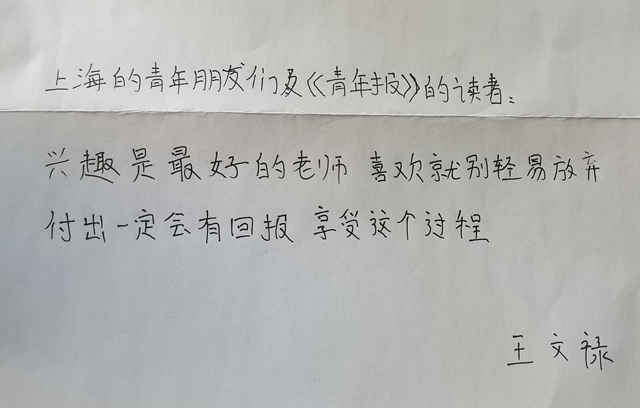 上海的青年朋友们及《青年报》的读者：
兴趣是最好的老师 喜欢就别轻易放弃
付出一定会有回报 享受这个过程
王文禄